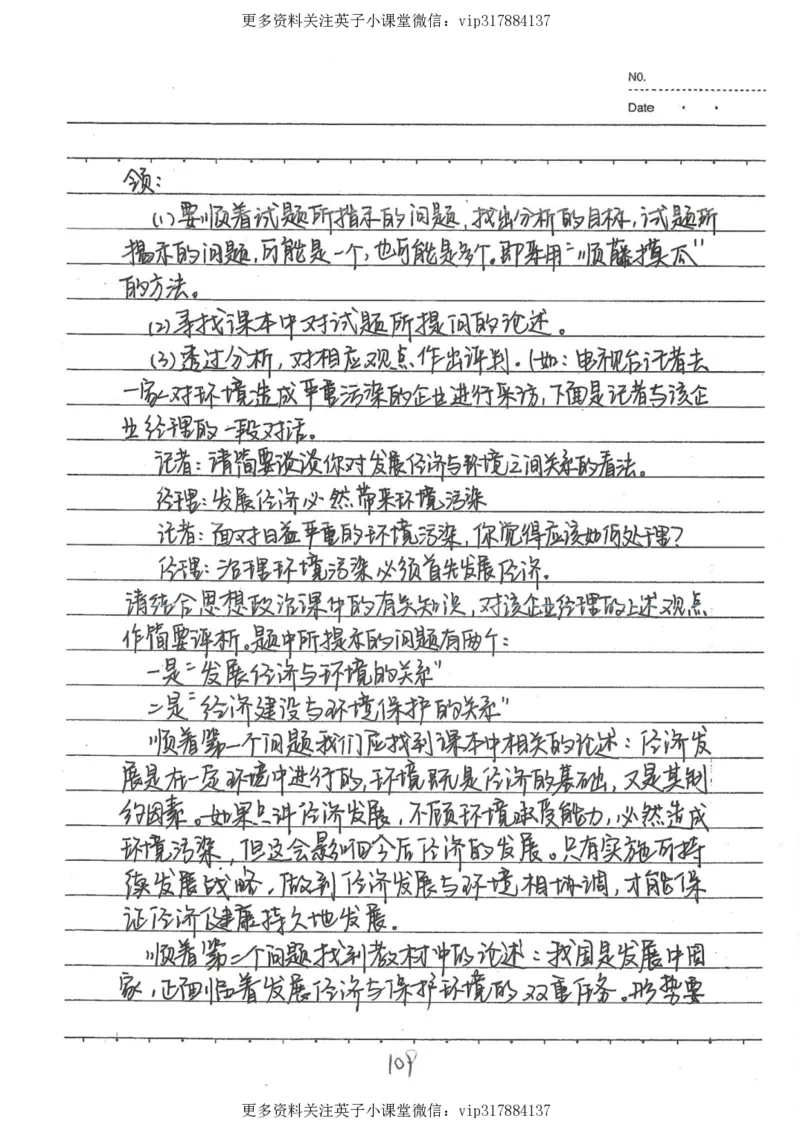 更多资料关注英子小课堂微信：vip317884137
NO.
Date
领：
(1)要顺着试题所指示的问题，找出分析的目标，试题所
揭示的问题，可能是一个，也可能是多个。即采用“顺藤摸瓜”
的方法。
(2)寻找课本中对试题所提问的论述。
(3)透过分析，对相应观点作出评判。(如：电视台记者去
一家对环境造成严重污染的企业进行采访，下面是记者与该企
业经理的一段对话。
记者：请简要谈谈你对发展经济与环境之间关系的看法。
经理：发展经济必然带来环境污染
记者：面对日益严重的环境污染，你觉得应该如何处理？
经理：治理环境污染必须首先发展经济。
请结合思想政治课中的有关知识，对该企业经理的上述观点
作简要评析。题中所提示的问题有两个：
一是“发展经济与环境的关系”
二是“经济建设与环境保护的关系”
顺着第一个问题我们应找到课本中相关的论述：经济发
展是在一定环境中进行的，环境既是经济的基础，又是其制
约因素。如果只讲经济发展，不顾环境承受能力，必然造成
环境污染，但这会影响今后经济的发展。只有实施可持
续发展战略，做到经济发展与环境相协调，才能保
证经济健康持久地发展。
顺着第二个问题找到教材中的论述：我国是发展中国
家，正面临着发展经济与保护环境的双重任务。形势要
109
更多资料关注英子小课堂微信：vip317884137